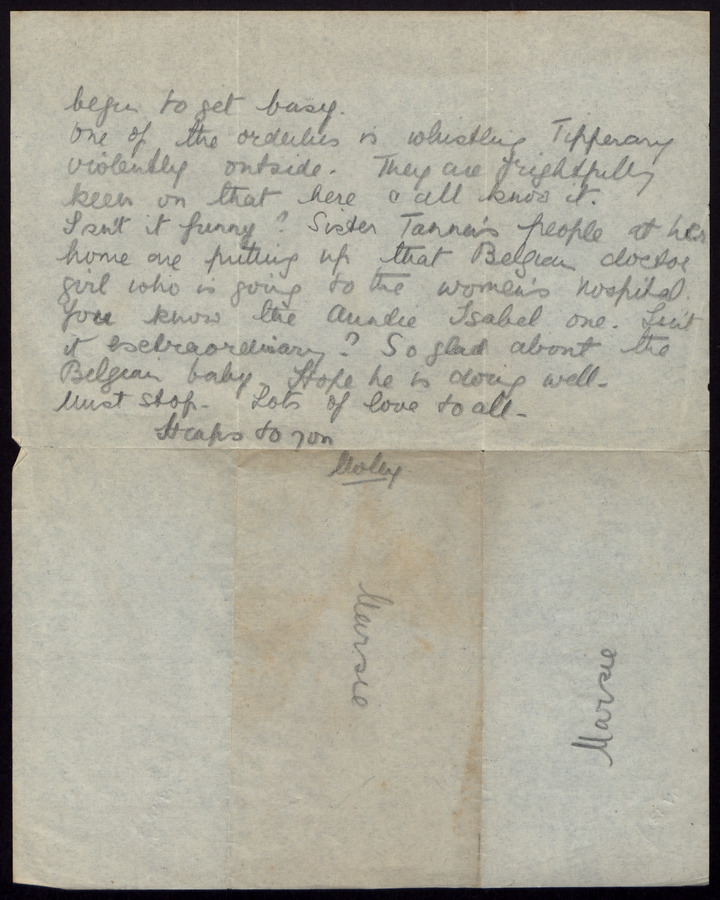 begin to get busy.
One of the orderlies is whistling Tipperary
violently outside. They are frightfully
keen on that here & all know it.
Isn't it funny? Sister Tanner's people at her
home are putting up that Belgian doctor
girl who is going to the women's hospital.
You know the Auntie Isabel one. Isn't
it extraordinary? So glad about the
Belgian baby. Hope he is doing well-
Must stop- Lots of love to all-
Heaps to you
Moley
Marsie
Marsie